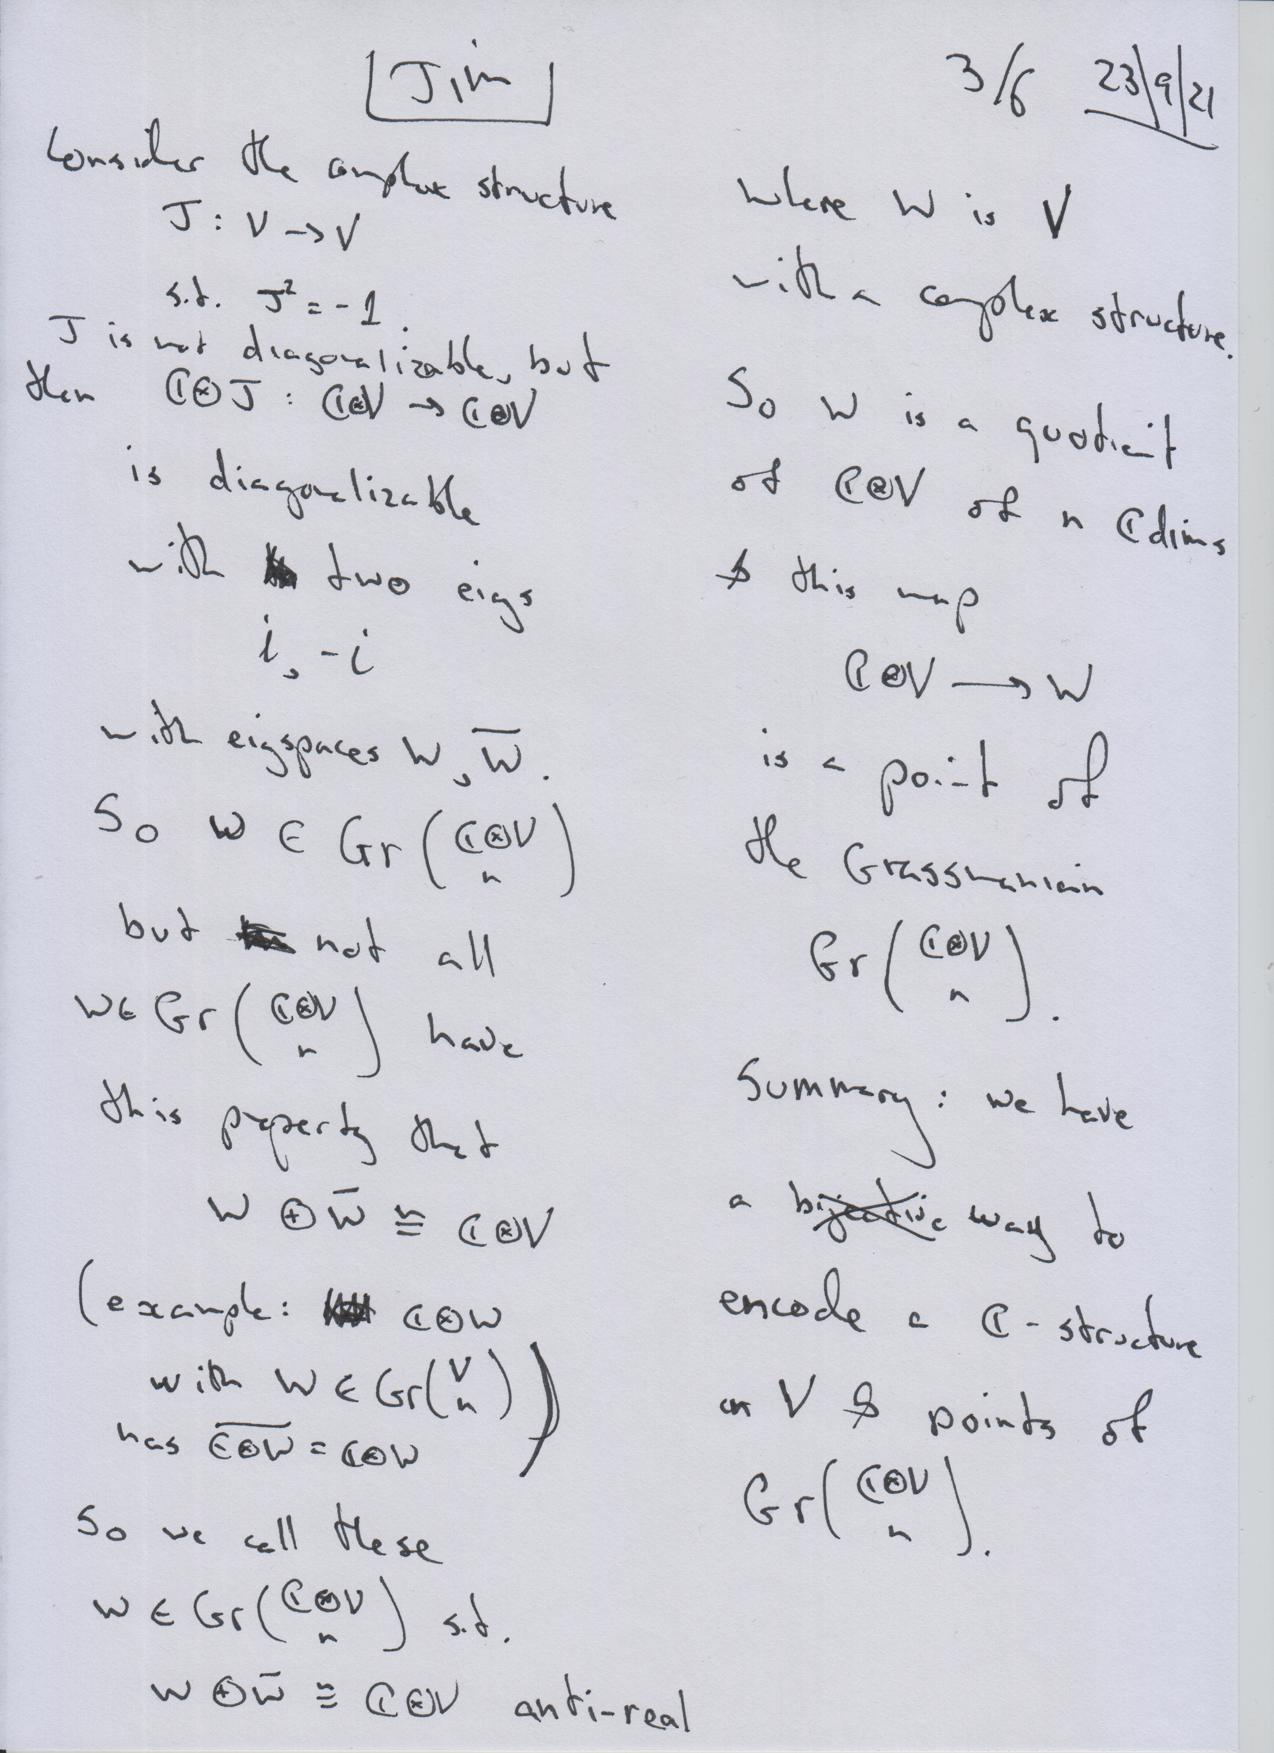 Jim
3/6 23/9/21
Consider the complex structure
J : V → V
s.t. J² = -1.
J is not diagonalizable, but
then ℂ⊗J : ℂ⊗V → ℂ⊗V
is diagonalizable
with two eigs
i, -i
with eigspaces W, W̅.
So W ∈ Gr(ℂ⊗V
n)
but not all
W∈ Gr(ℂ⊗V
n) have
this property that
W ⊕ W̅ ≅ ℂ⊗V
(example: ℂ⊗W
with W ∈ Gr(V
n)
has ℂ⊗W̅ = ℂ⊗W)
So we call these
W ∈ Gr(ℂ⊗V
n) s.t.
W ⊕ W̅ ≅ ℂ⊗V anti-real
where W is V
with a complex structure.
So W is a quotient
of ℂ⊗V of n ℂdims
& this map
ℂ⊗V → W
is a point of
the Grassmanian
Gr(ℂ⊗V
n).
Summary: we have
a bijective way to
encode a ℂ-structure
on V & points of
Gr(ℂ⊗V
n).